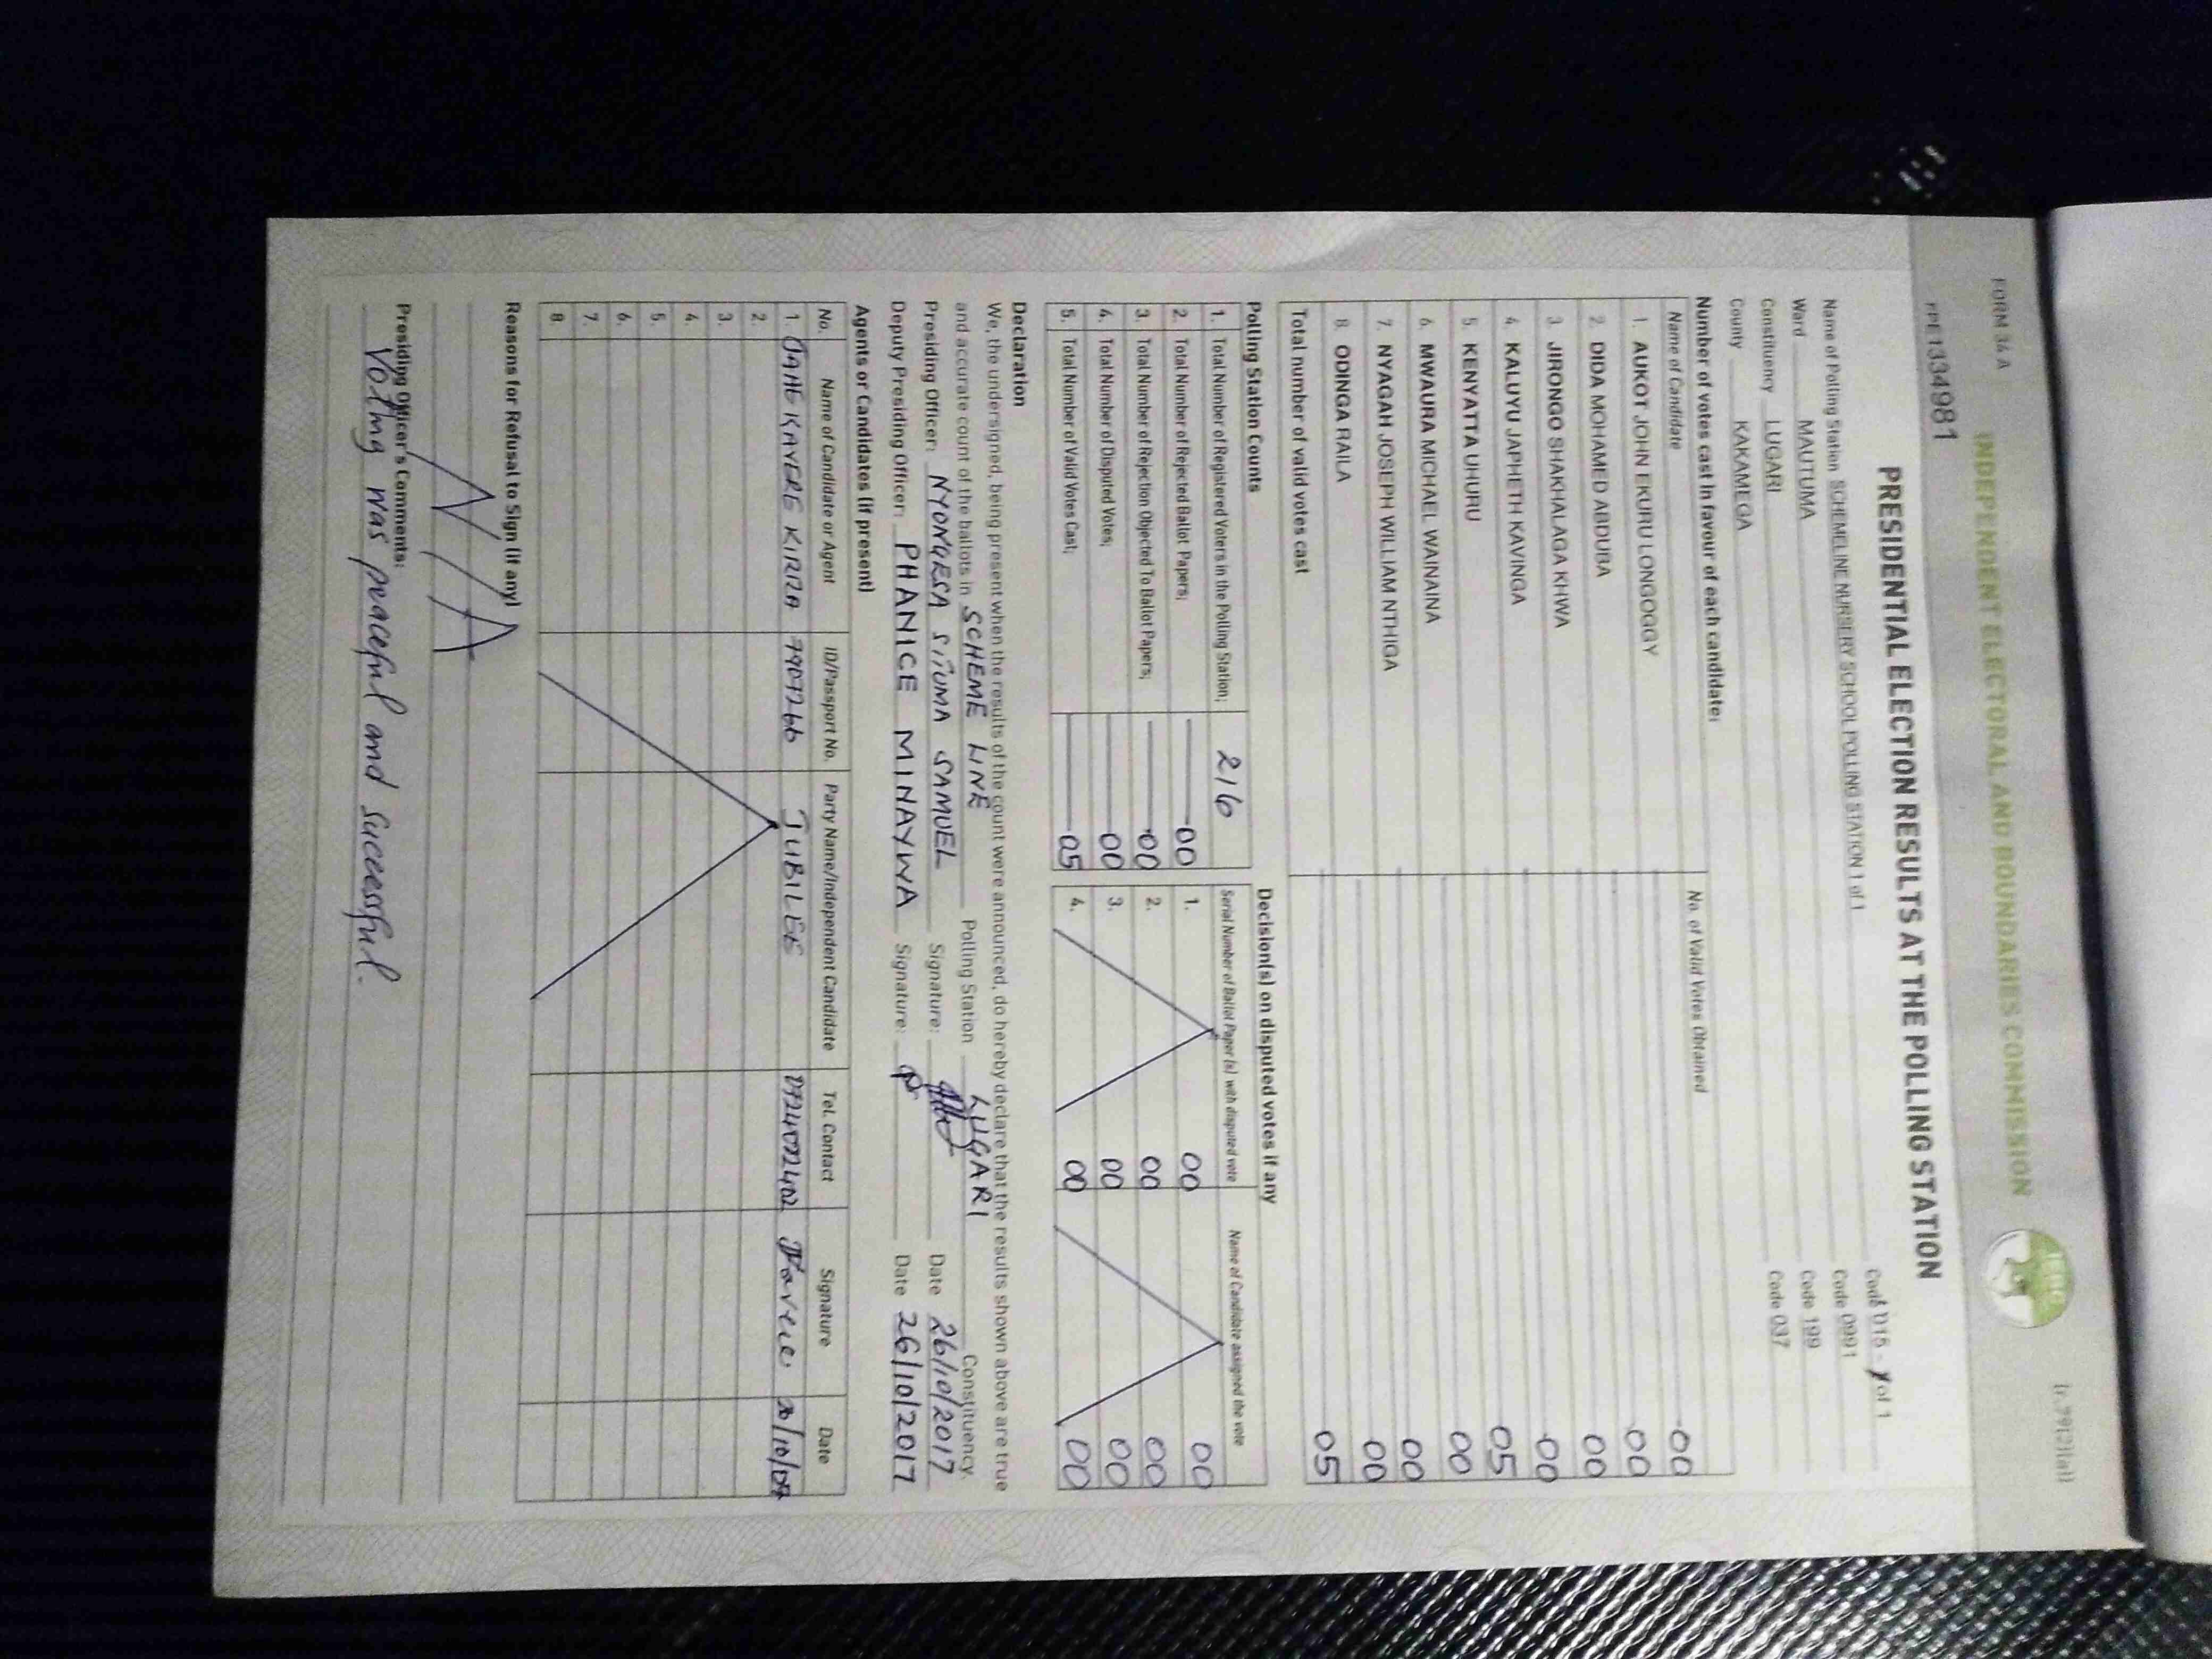 FORM 34 A
INDEPENDENT ELECTORAL AND BOUNDARIES COMMISSION
IEBC
(r.79(2)(a))
PRE1334981
PRESIDENTIAL ELECTION RESULTS AT THE POLLING STATION
Name of Polling Station SCHEMELINE NURSERY SCHOOL POLLING STATION 1 of 1 Code 015 - 1 of 1
Ward MAUTUMA Code 0991
Constituency LUGARI Code 199
County KAKAMEGA Code 037
Number of votes cast in favour of each candidate:
Name of Candidate No. of Valid Votes Obtained
1. AUKOT JOHN EKURU LONGOGGY 00
2. DIDA MOHAMED ABDUBA 00
3. JIRONGO SHAKHALAGA KHWA 00
4. KALUYU JAPHETH KAVINGA 00
5. KENYATTA UHURU 05
6. MWAURA MICHAEL WAINAINA 00
7. NYAGAH JOSEPH WILLIAM NTHIGA 00
8. ODINGA RAILA 00
Total number of valid votes cast 05
Polling Station Counts
1. Total Number of Registered Voters in the Polling Station; 216
2. Total Number of Rejected Ballot Papers; 00
3. Total Number of Rejection Objected To Ballot Papers; 00
4. Total Number of Disputed Votes; 00
5. Total Number of Valid Votes Cast; 05
Decision(s) on disputed votes if any
Serial Number of Ballot Paper(s) with disputed vote Name of Candidate assigned the vote
1. 00 00
2. 00 00
3. 00 00
4. 00 00
Declaration
We, the undersigned, being present when the results of the count were announced, do hereby declare that the results shown above are true
and accurate count of the ballots in SCHEME LINE Polling Station LUGARI Constituency.
Presiding Officer: NYONGESA SIUMA SAMUEL Signature: Date 26/10/2017
Deputy Presiding Officer: PHANICE MINAYWA Signature: Date 26/10/2017
Agents or Candidates (if present)
No. Name of Candidate or Agent ID/Passport No. Party Name/Independent Candidate Tel. Contact Signature Date
1. KAVERE 7907266 JUBILEE
2.
3.
4.
5.
6.
7.
8.
Reasons for Refusal to Sign (if any)
N/A
Presiding Officer's Comments:
Voting was peaceful and successful.